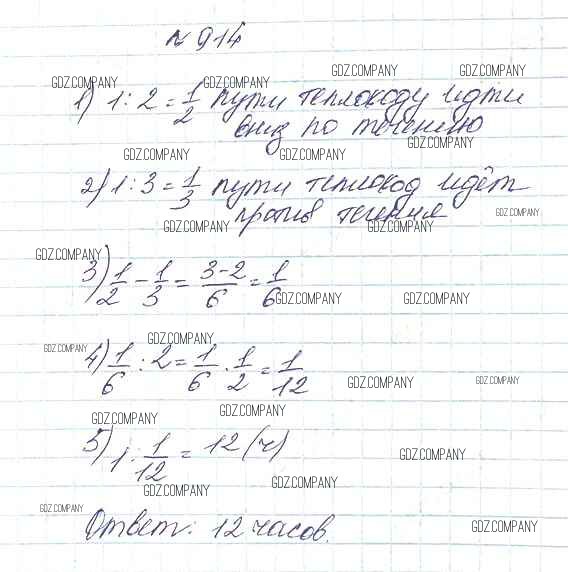 № 914
GDZ.COMPANY GDZ.COMPANY
GDZ.COMPANY GDZ.COMPANY
1) 1 : 2 = 1/2 пути теплоходу идти
вниз по течению
GDZ.COMPANY
GDZ.COMPANY GDZ.COMPANY
2) 1 : 3 = 1/3 пути теплоход идёт
против течения
GDZ.COMPANY
GDZ.COMPANY GDZ.COMPANY
GDZ.COMPANY
3) 1/2 - 1/3 = 3-2/6 = 1/6
GDZ.COMPANY GDZ.COMPANY
GDZ.COMPANY GDZ.COMPANY
4) 1/6 : 2 = 1/6 · 1/2 = 1/12
GDZ.COMPANY GDZ.COMPANY
GDZ.COMPANY GDZ.COMPANY
5) 1 : 1/12 = 12 (ч)
GDZ.COMPANY
GDZ.COMPANY GDZ.COMPANY
GDZ.COMPANY
Ответ: 12 часов.
GDZ.COMPANY